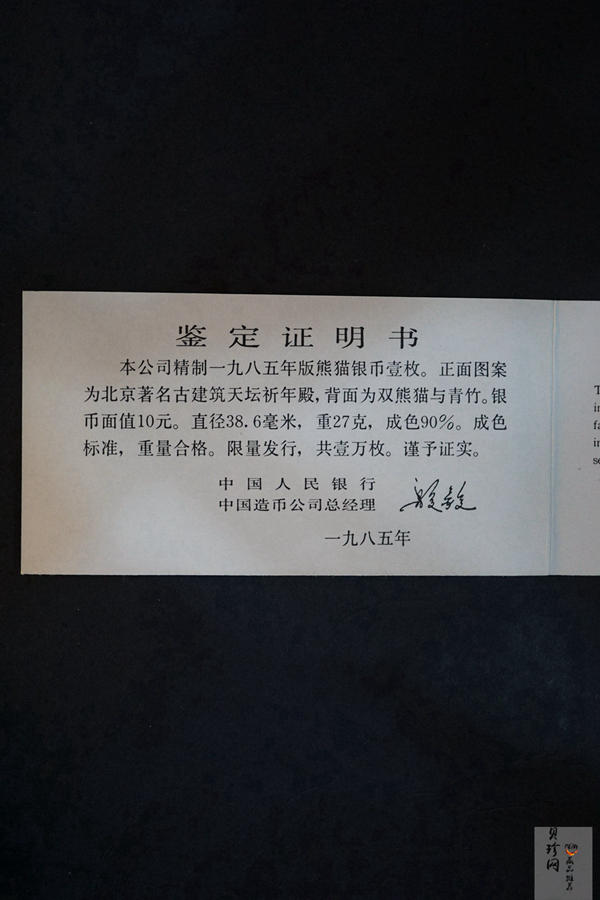 鉴定证明书
本公司精制一九八五年版熊猫银币壹枚。正面图案
为北京著名古建筑天坛祈年殿,背面为双熊猫与青竹。银
币面值10元。直径38.6毫米,重27克,成色90%。成色
标准,重量合格。限量发行,共壹万枚。谨予证实。
中国人民银行
中国造币公司总经理
一九八五年
T
in
fa
in
se
贝珍网
藏品推荐